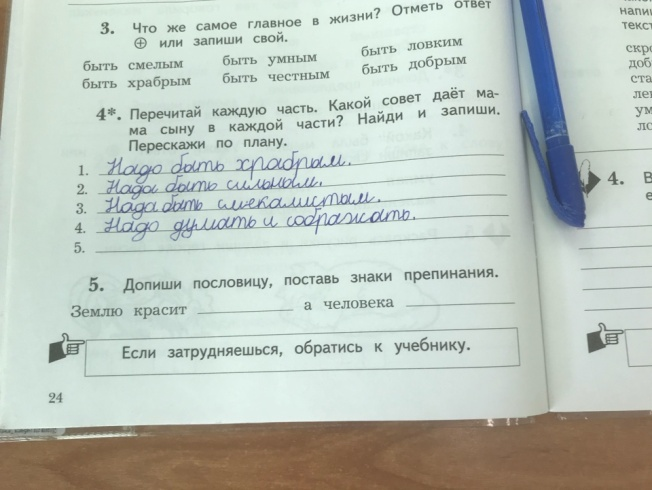 3. Что же самое главное в жизни? Отметь ответ
⊕ или запиши свой.
быть смелым быть умным быть ловким
быть храбрым быть честным быть добрым
4*. Перечитай каждую часть. Какой совет даёт ма-
ма сыну в каждой части? Найди и запиши.
Перескажи по плану.
1. Надо быть храбрым.
2. Надо быть сильным.
3. Надо быть смекалистым.
4. Надо думать и соображать.
5.
5. Допиши пословицу, поставь знаки препинания.
Землю красит а человека
Если затрудняешься, обратись к учебнику.
24
напи
текст
скро
доб
ста
ум
4. В